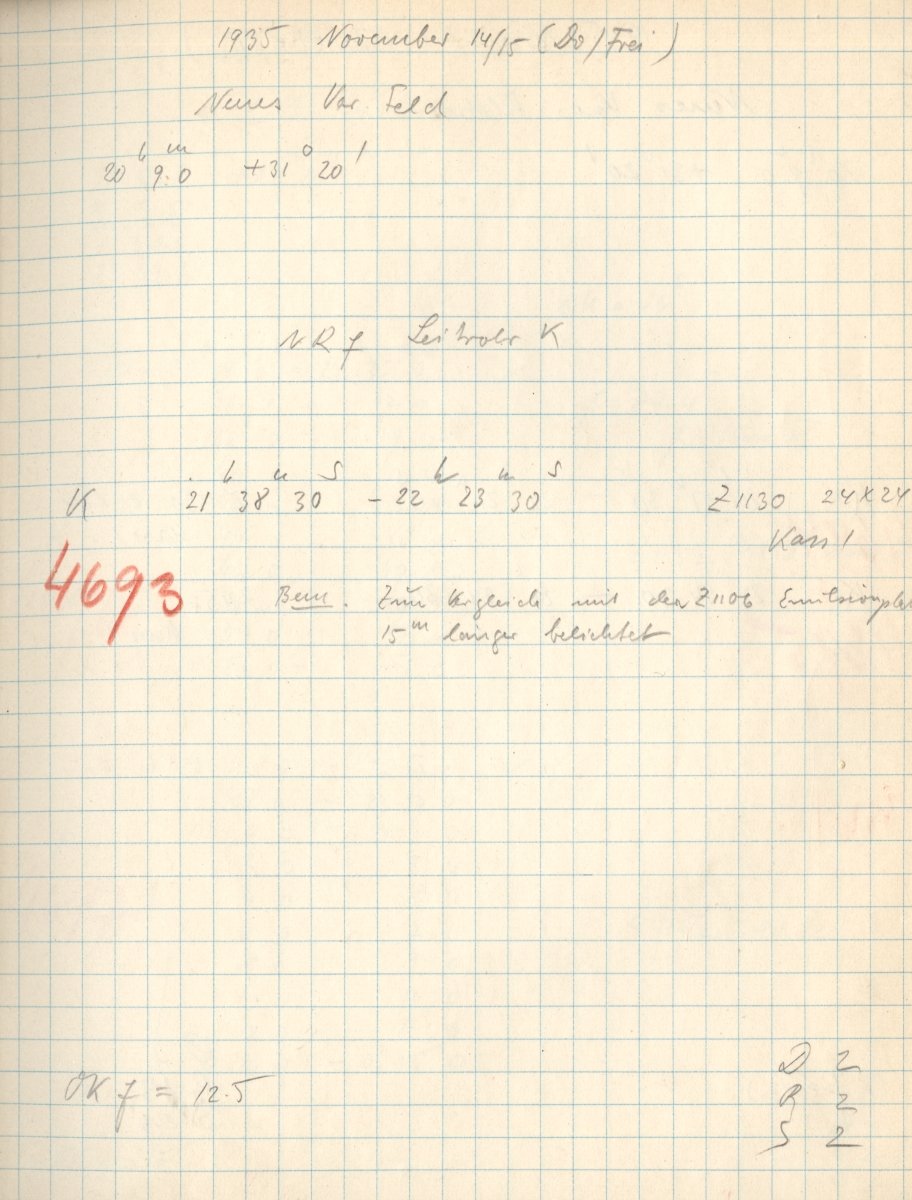 1935 November 14/15 (Do/Frei)
Neues Var. Feld
20ʰ 9.0ᵐ +31° 20'
NR f Leitrohr K
K 21ʰ 38ᵐ 30ˢ – 22ʰ 23ᵐ 30ˢ Z1130 24x24
Kass 1
4693
Bem. Zum Vergleich mit den Z1106 Emulsionsplat
15ᵐ länger belichtet
OK f = 12.5
D 2
R 2
S 2